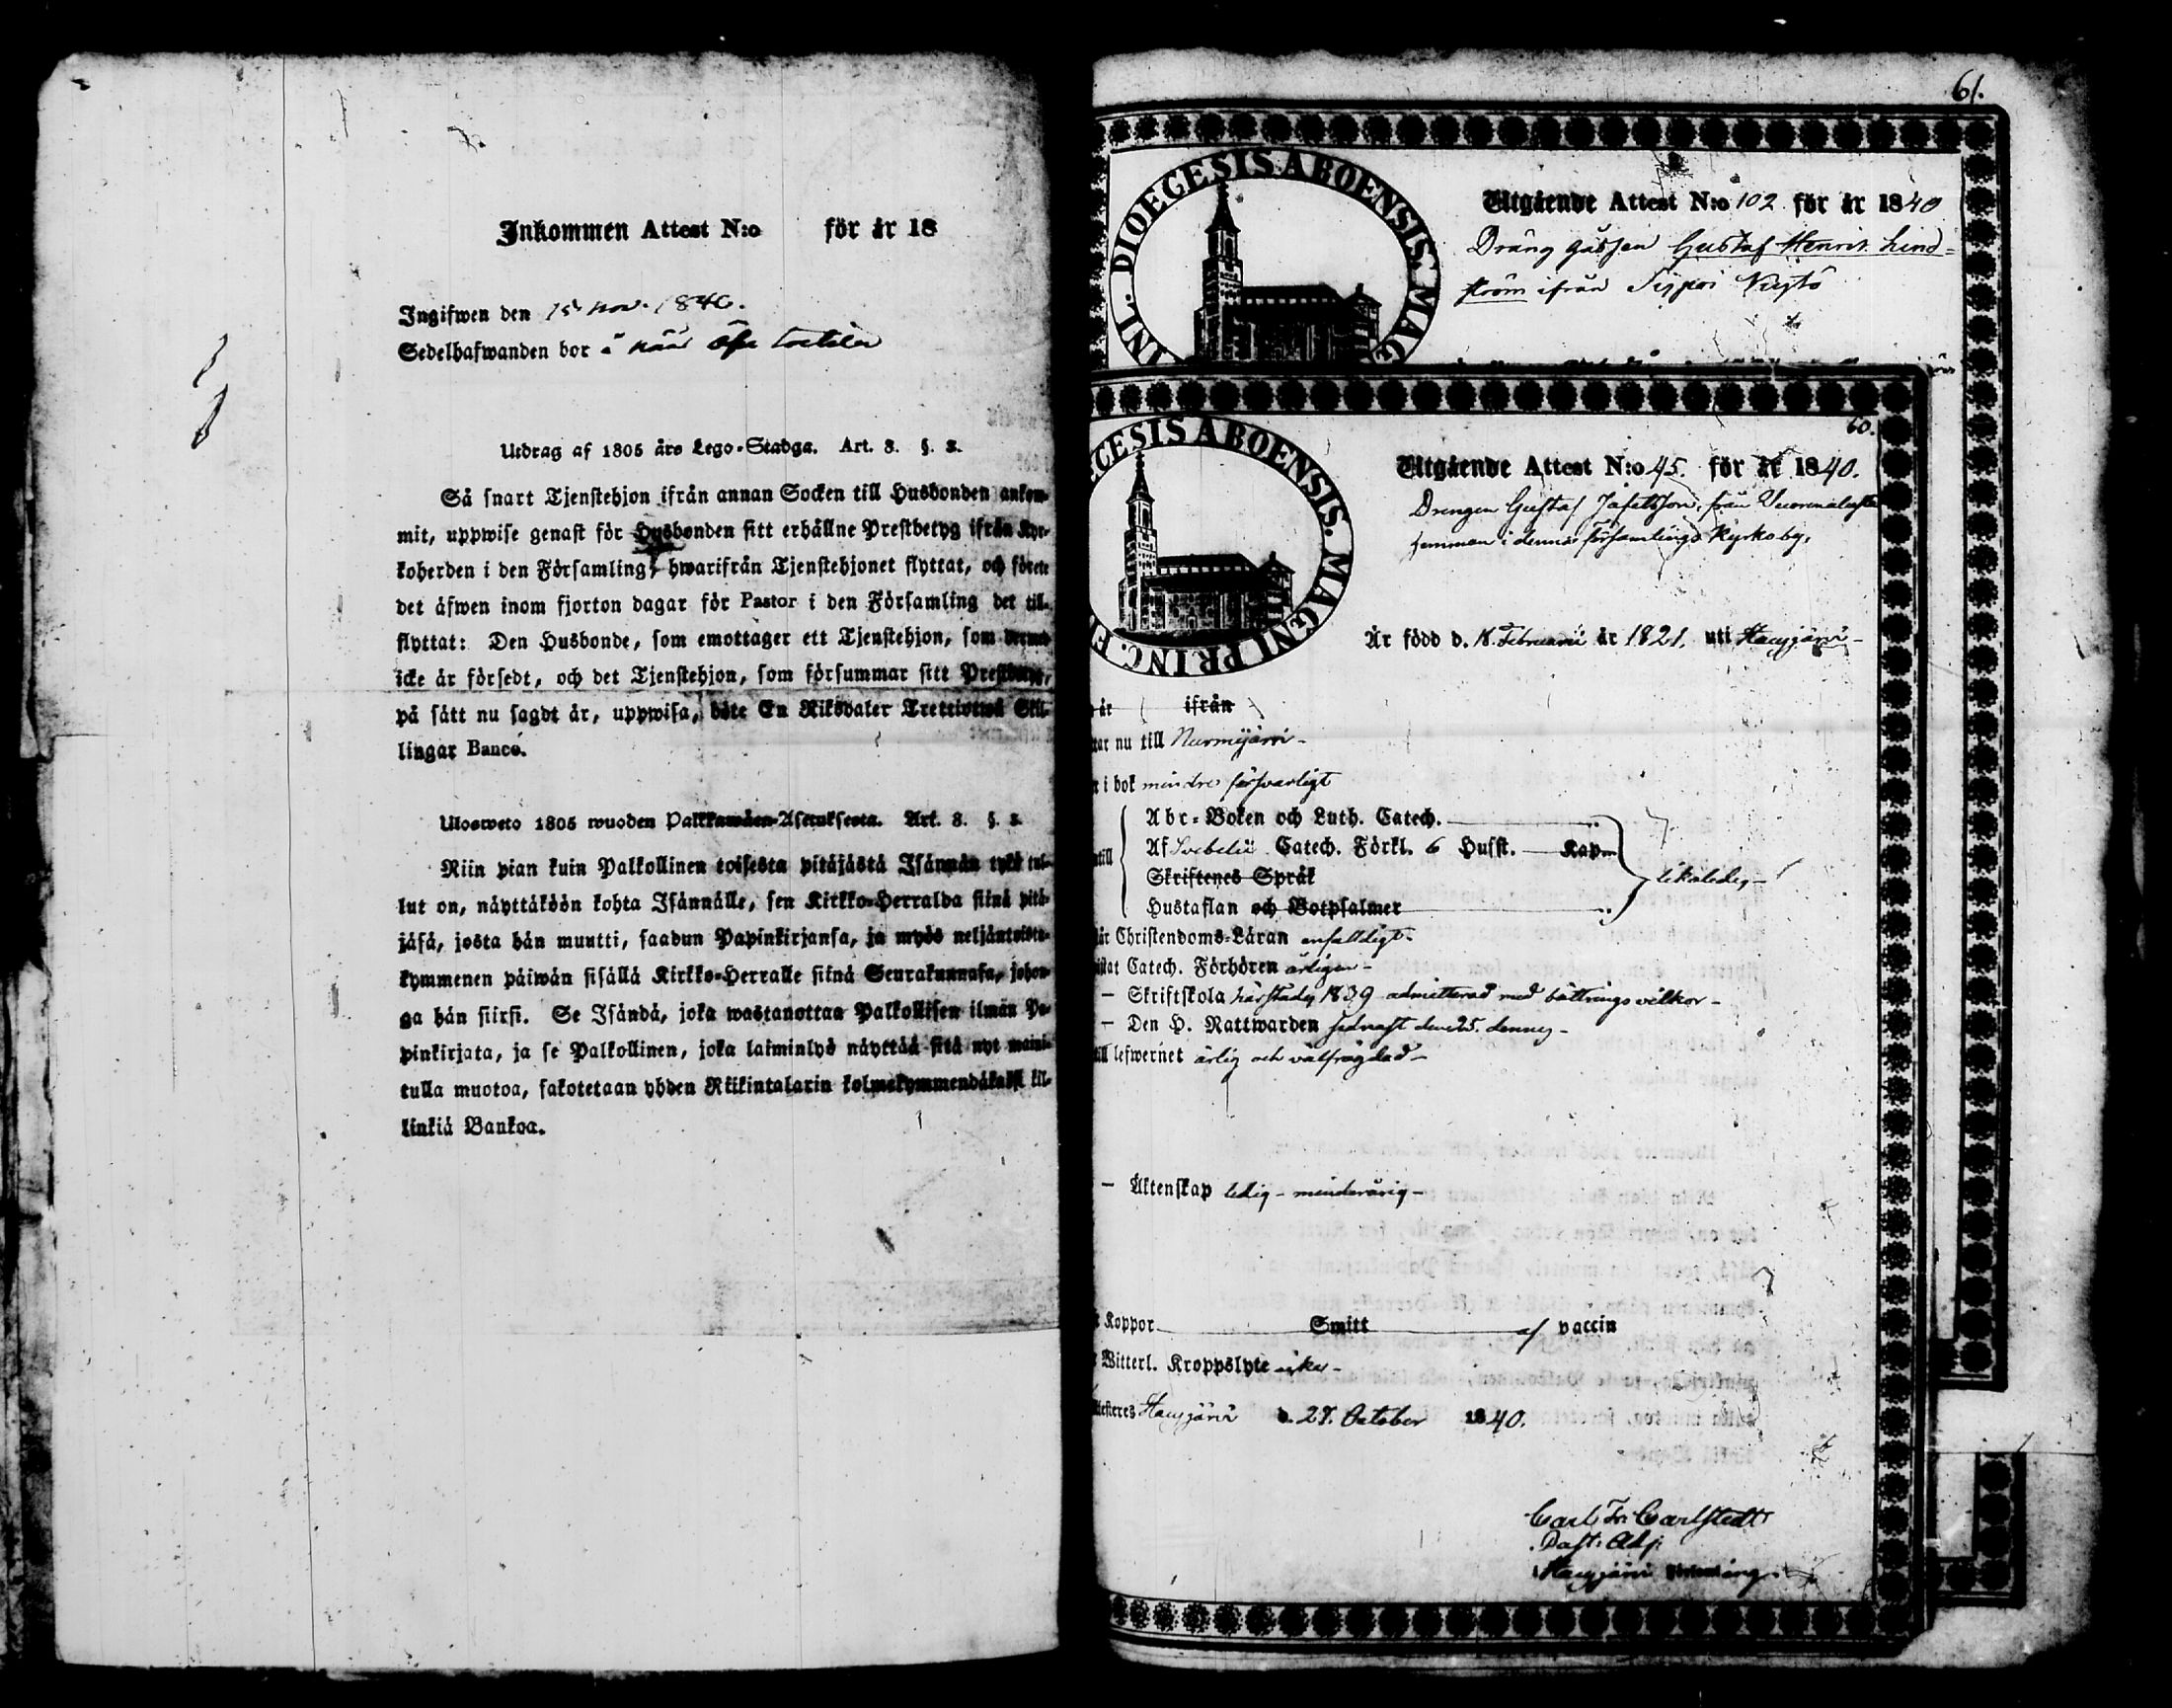 Inkommen Attest N:o för år 18
Ingifwen den 15 nov. 1840.
Sedelhafwanden bor å
Utdrag af 1805 års Lego-Stadga. Art. 8. §. 2.
Så snart Tjenstehjon ifrån annan Socken till Husbonden ankom-
mit, uppwise genast för Husbonden sitt erhållne Prestbetyg ifrån Kyr-
koherden i den Församling, hwarifrån Tjenstehjonet flyttat, och förete
det äfwen inom fjorton dagar för Pastor i den Församling det till-
flyttat: Den Husbonde, som emottager ett Tjenstehjon, som dermed
icke är försedt, och det Tjenstehjon, som försummar sitt Prestbetyg,
på sätt nu sagdt är, uppwisa, böte En Riksdaler Trettiotwå Skil-
lingar Banco.
Ulosweto 1805 wuoden Palkkawäen-Asetuksesta. Art. 8. §. 2.
Niin pian kuin Palkollinen toisesta pitäjästä Isännän tykö tul-
lut on, näyttäköön kohta Isännälle, sen Kirkko-Herralda siinä pitä-
jäsä, josta hän muutti, saadun Papinkirjansa, ja myös neljäntoista-
kymmenen päiwän sisällä Kirkko-Herralle siinä Seurakunnasa, johon-
ga hän siirsi. Se Isändä, joka wastanottaa Palkollisen ilman Pa-
pinkirjata, ja se Palkollinen, joka laiminlyö näyttää sitä nyt maini-
tulla muotoa, sakotetaan yhden Riikintalarin kolmekymmendäkaksi kil-
linkiä Bankoa.
61.
DIOECESIS ABOENSIS. MAG
Utgående Attest N:o 102 för år 1840
Dräng gossen Gustaf Henrik Lind-
ström ifrån
60.
CESIS ABOENSIS. MAGNI PRINC.
Utgående Attest N:o 45. för år 1840.
Drengen Gustaf Josefsson, från
hemman i denna församlings Kyrkoby,
Är född d. 18. Februarii år 1821. uti Hausjärvi
år ifrån
tar nu till Nurmijärvi
i bok mindre försvarligt
Abc-Boken och Luth. Catech.
Af Svebelii Catech. Förkl. 6 Hufst. Kap.
Skriftenes Språk
Hustaflan och Botpsalmer
Christendoms-Läran enfaldigt.
Catech. Förhören årligen
Skriftskola härstädes 1839 admitterad med bättrings vilkor
Den H. Nattwarden sednast den 25. dennes
lefwernet ärlig och välfrägdad
Äktenskap ledig minderårig
Koppor Smitt af vaccin
Witterl. Kroppslyte icke
Hausjärvi d. 27. October 1840.
Carl Fr. Carlstedt
Past. Adj.
i Hausjärvi Församling.